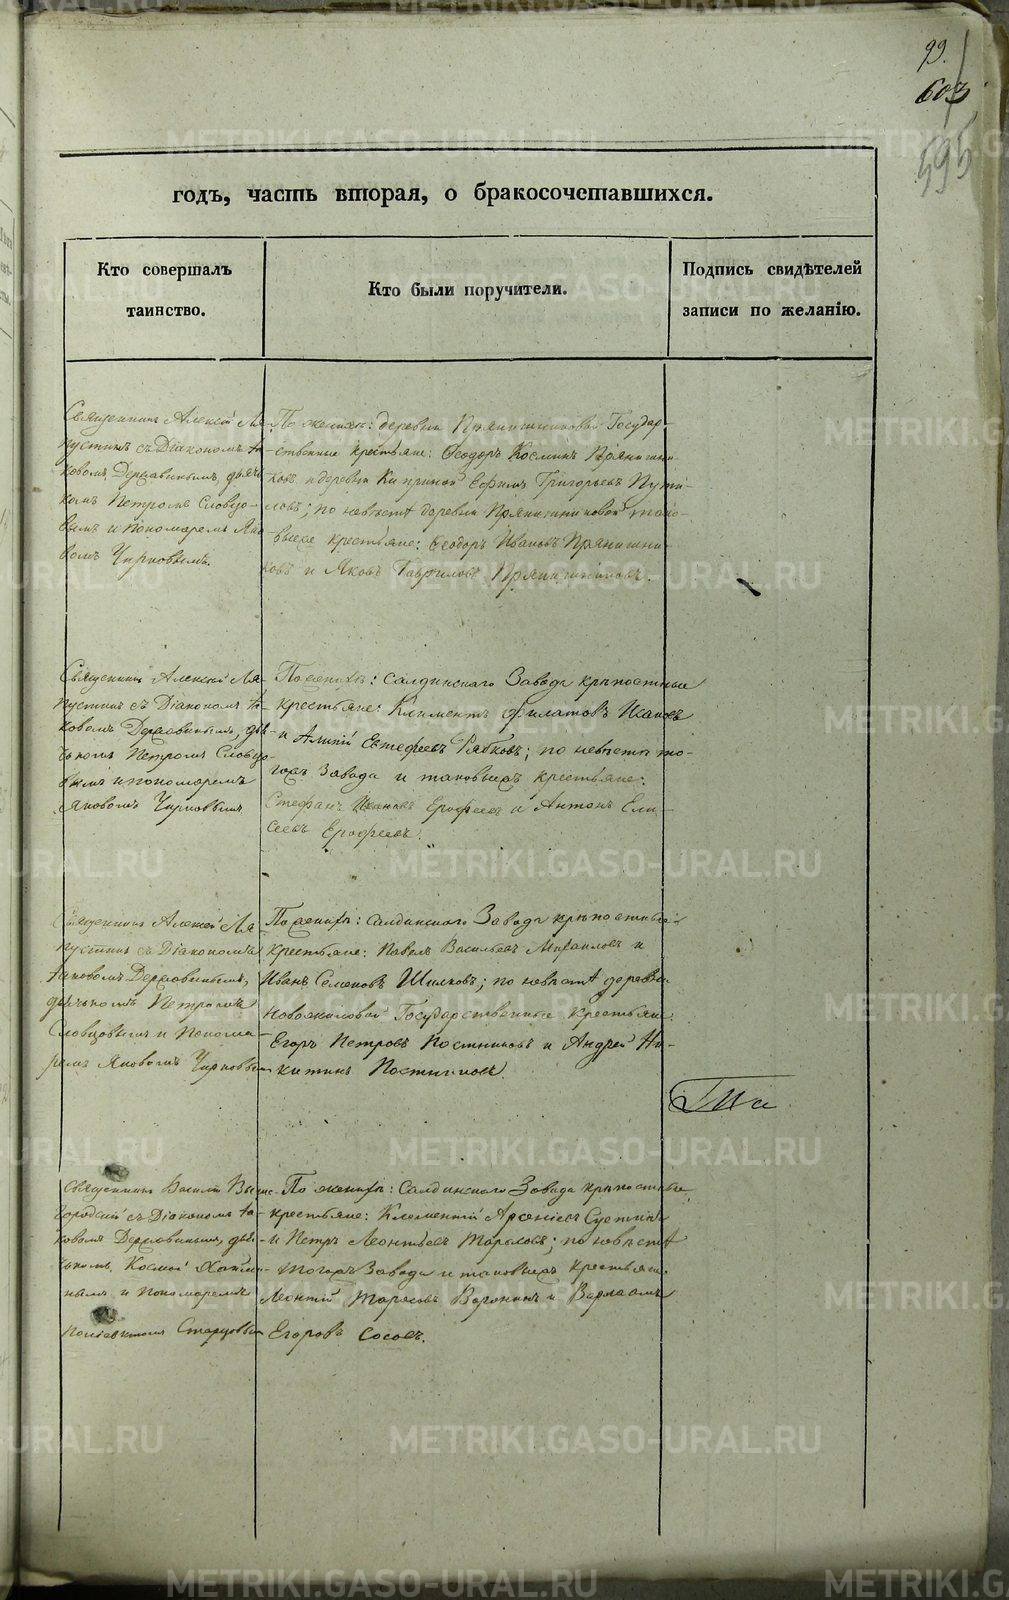 99.
603
595
годъ, часть вторая, о бракосочетавшихся.
Кто совершалъ
таинство.
Кто были поручители.
Подпись свидѣтелей
записи по желанію.
Священникъ Алексѣй Ля-
пустинъ съ Діакономъ Іа-
ковомъ Державинымъ, дьяч-
комъ Петромъ Словцо-
вымъ и пономаремъ Яко-
вомъ Чирковымъ.
По женихѣ: деревни Прянишниковы Государ-
ственные крестьяне: Ѳеодоръ Косминъ Прянишни-
ковъ и деревни Киприной Ефимъ Григорьевъ Пути-
ловъ; по невѣстѣ деревни Прянишниковой тако-
выеже крестьяне: Ѳеодоръ Ивановъ Прянишни-
ковъ и Яковъ Гавриловъ Прянишниковъ.
Священникъ Алексѣй Ля-
пустинъ съ Діакономъ Іа-
ковомъ Державинымъ, дья-
чькомъ Петромъ Словцо-
вымъ и пономаремъ
Яковомъ Чирковымъ
По женихѣ: Салдинскаго Завода крѣпостные
крестьяне: Климентъ Филатовъ Исаковъ
и Алипій Евстефеевъ Рябковъ; по невѣсты то-
гожъ Завода и таковыежъ крестьяне:
Стефанъ Ивановъ Ерофеевъ и Антонъ Ели-
сеевъ Ерофеевъ.
Священникъ Алексѣй Ля-
пустинъ съ Діакономъ
Іаковомъ Державинымъ,
дьячькомъ Петромъ
Словцовымъ и Понома-
ремъ Яковомъ Чирковымъ
По женихѣ: Салдинскаго Завода крѣпостные
крестьяне: Павелъ Васильевъ Михаиловъ и
Иванъ Семеновъ Шилковъ; по невѣстѣ деревни
Новожиловой Государственные крестьяне:
Егоръ Петровъ Постниковъ и Андрей Ни-
китинъ Постниковъ.
Священникъ Василій Выше-
городскій съ Діакономъ Іа-
ковомъ Державинымъ, дья-
чькомъ Космой
и пономаремъ
Старцовымъ
По женихѣ: Салдинскаго Завода крѣпостные
крестьяне: Клементій Арсеніевъ Сустинъ
и Петръ Леонтьевъ; по невѣстѣ
тогожъ Завода и таковыежъ крестьяне:
Леонтій Тарасовъ Воронинъ и Варлаамъ
Егоровъ Сосовъ.